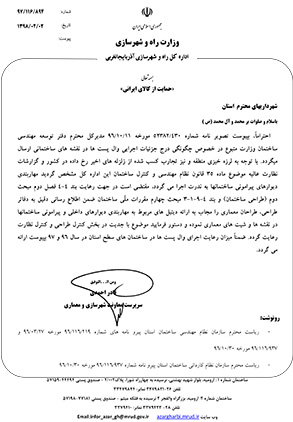 جمهوری اسلامی ایران
وزارت راه و شهرسازی
اداره کل راه و شهرسازی آذربایجانغربی
شماره ۹۷/۱۱۶/۸۹۴
تاریخ ۱۳۹۸/۰۲/۰۲
پیوست
بسمه تعالی
«حمایت از کالای ایرانی»
شهرداریهای محترم استان
باسلام و صلوات بر محمد و آل محمد (ص)
احتراماً، بپیوست تصویر نامه شماره ۵۲۳۸۲/۴۳۰ مورخه ۹۶/۱۰/۱۱ مدیرکل محترم دفتر توسعه مهندسی
ساختمان وزارت متبوع در خصوص چگونگی درج جزئیات اجرایی وال پست ها در نقشه های ساختمانی ارسال
میگردد. با توجه به لرزه خیزی منطقه و نیز تجارب کسب شده از زلزله های اخیر رخ داده در کشور و گزارشات
نظارت عالیه موضوع ماده ۳۵ قانون نظام مهندسی و کنترل ساختمان این اداره کل مشخص گردید مهاربندی
دیوارهای پیرامونی ساختمانها به ندرت اجرا می گردد. مقتضی است در جهت رعایت بند ۴-۴ فصل دوم مبحث
دوم (طراحی ساختمان) و بند ۴-۹-۱-۳ مبحث چهارم مقررات ملی ساختمان ضمن اطلاع رسانی دقیق به دفاتر
طراحی، طراحان معماری را مجاب به ارائه دیتیل های مربوط به مهاربندی دیوارهای داخلی و پیرامونی ساختمانها
در نقشه ها و شیت های معماری نموده و دستور فرمایید موضوع با جدیت در بخش کنترل طراحی و کنترل نظارت
رعایت گردد. ضمناً میزان رعایت اجرای وال پست ها در ساختمان های سطح استان در سال ۹۶ و ۹۷ بپیوست ارائه
می گردد.
سرپرست معاونت شهرسازی و معماری
رونوشت:
- ریاست محترم سازمان نظام مهندسی ساختمان استان پیرو نامه های شماره ۹۶/۱۱۶/۲۱۹ مورخه ۹۶/۰۳/۲۷ و
۹۶/۱۱۶/۹۳۷ مورخه ۹۶/۱۰/۳۰
- ریاست محترم سازمان نظام کاردانی ساختمان استان پیرو نامه شماره ۹۶/۱۱۶/۹۳۷ مورخه ۹۶/۱۰/۳۰
وب سایت azargharbi.mrud.ir